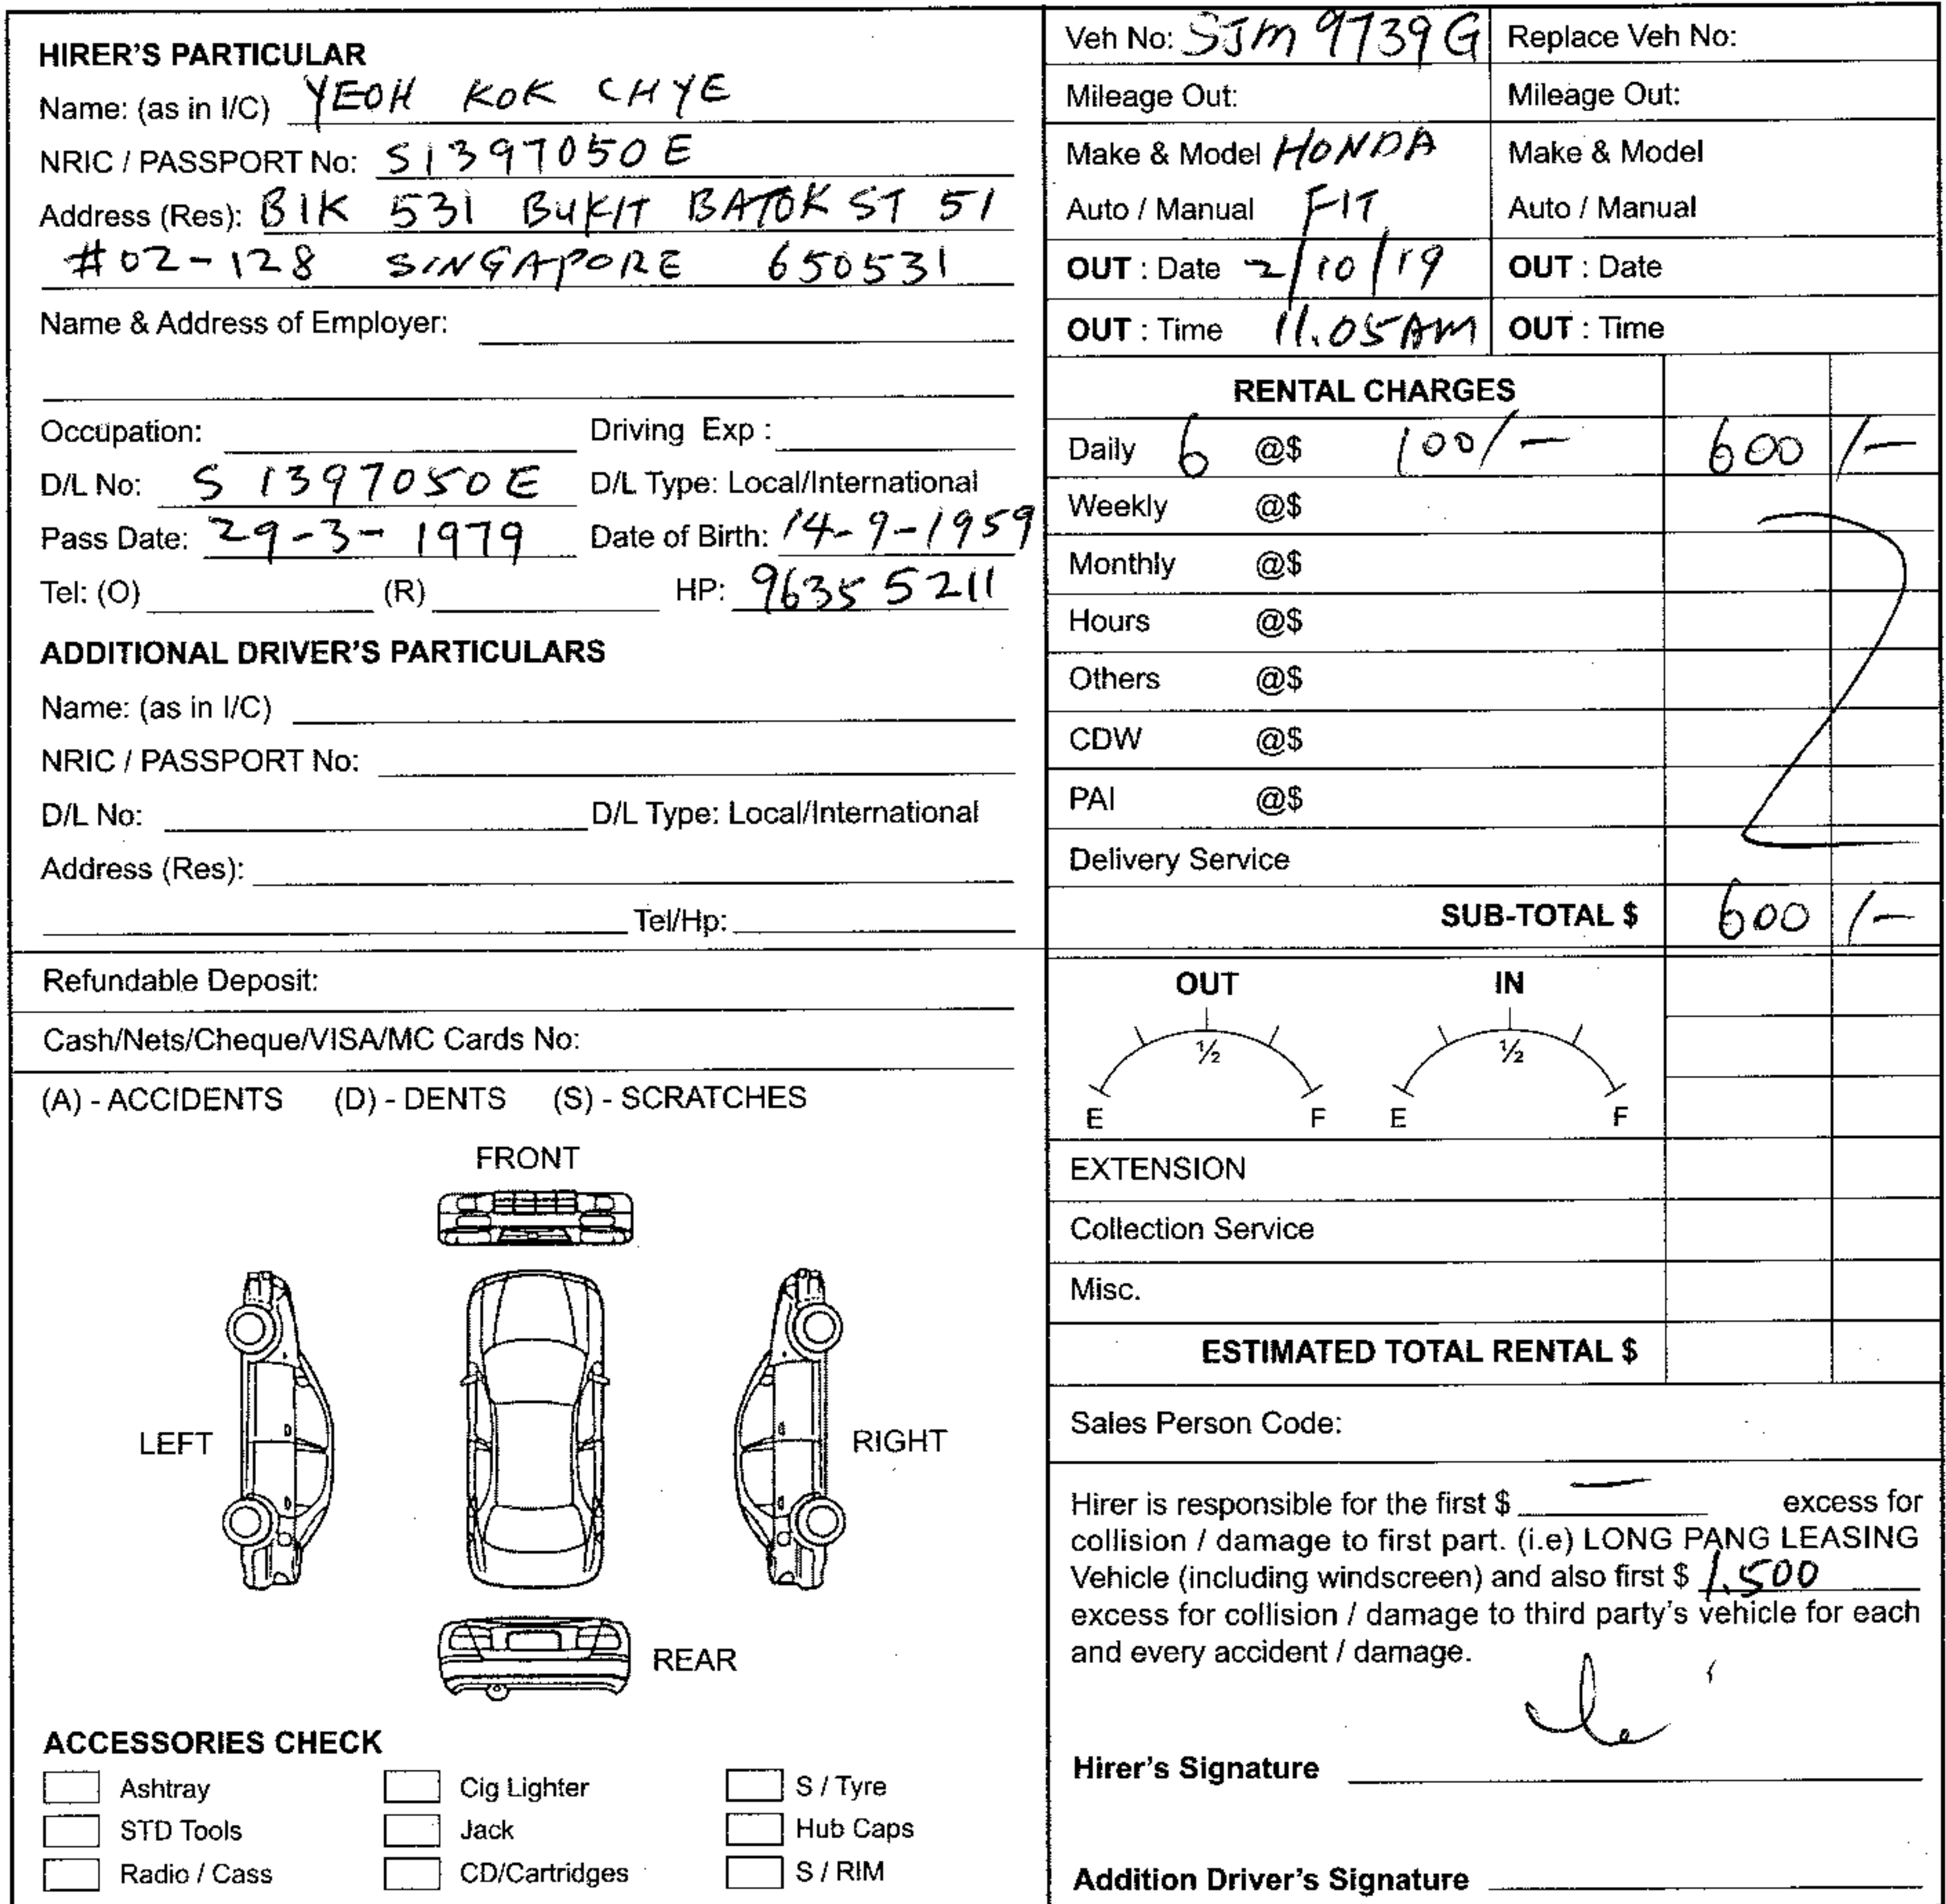 HIRER'S PARTICULAR
Name: (as in I/C) YEOH KOK CHYE
NRIC / PASSPORT No: S1397050E
Address (Res): BIK 531 BUKIT BATOK ST 51
#02-128 SINGAPORE 650531
Name & Address of Employer:
Occupation: Driving Exp :
D/L No: S 1397050E D/L Type: Local/International
Pass Date: 29-3-1979 Date of Birth: 14-9-1959
Tel: (O) (R) HP: 9635 5211
ADDITIONAL DRIVER'S PARTICULARS
Name: (as in I/C)
NRIC / PASSPORT No:
D/L No: D/L Type: Local/International
Address (Res):
Tel/Hp:
Refundable Deposit:
Cash/Nets/Cheque/VISA/MC Cards No:
(A) - ACCIDENTS (D) - DENTS (S) - SCRATCHES
FRONT
LEFT
RIGHT
REAR
ACCESSORIES CHECK
Ashtray Cig Lighter S / Tyre
STD Tools Jack Hub Caps
Radio / Cass CD/Cartridges S / RIM
Veh No: SJM 9739G Replace Veh No:
Mileage Out: Mileage Out:
Make & Model HONDA Make & Model
Auto / Manual FIT Auto / Manual
OUT : Date 2/10/19 OUT : Date
OUT : Time 11.05AM OUT : Time
RENTAL CHARGES
Daily 6 @$ 100/- 600 /-
Weekly @$
Monthly @$
Hours @$
Others @$
CDW @$
PAI @$
Delivery Service
SUB-TOTAL $ 600 /-
OUT IN
½ ½
E F E F
EXTENSION
Collection Service
Misc.
ESTIMATED TOTAL RENTAL $
Sales Person Code:
Hirer is responsible for the first $ — excess for
collision / damage to first part. (i.e) LONG PANG LEASING
Vehicle (including windscreen) and also first $ 1.500
excess for collision / damage to third party's vehicle for each
and every accident / damage.
Hirer's Signature
Addition Driver's Signature